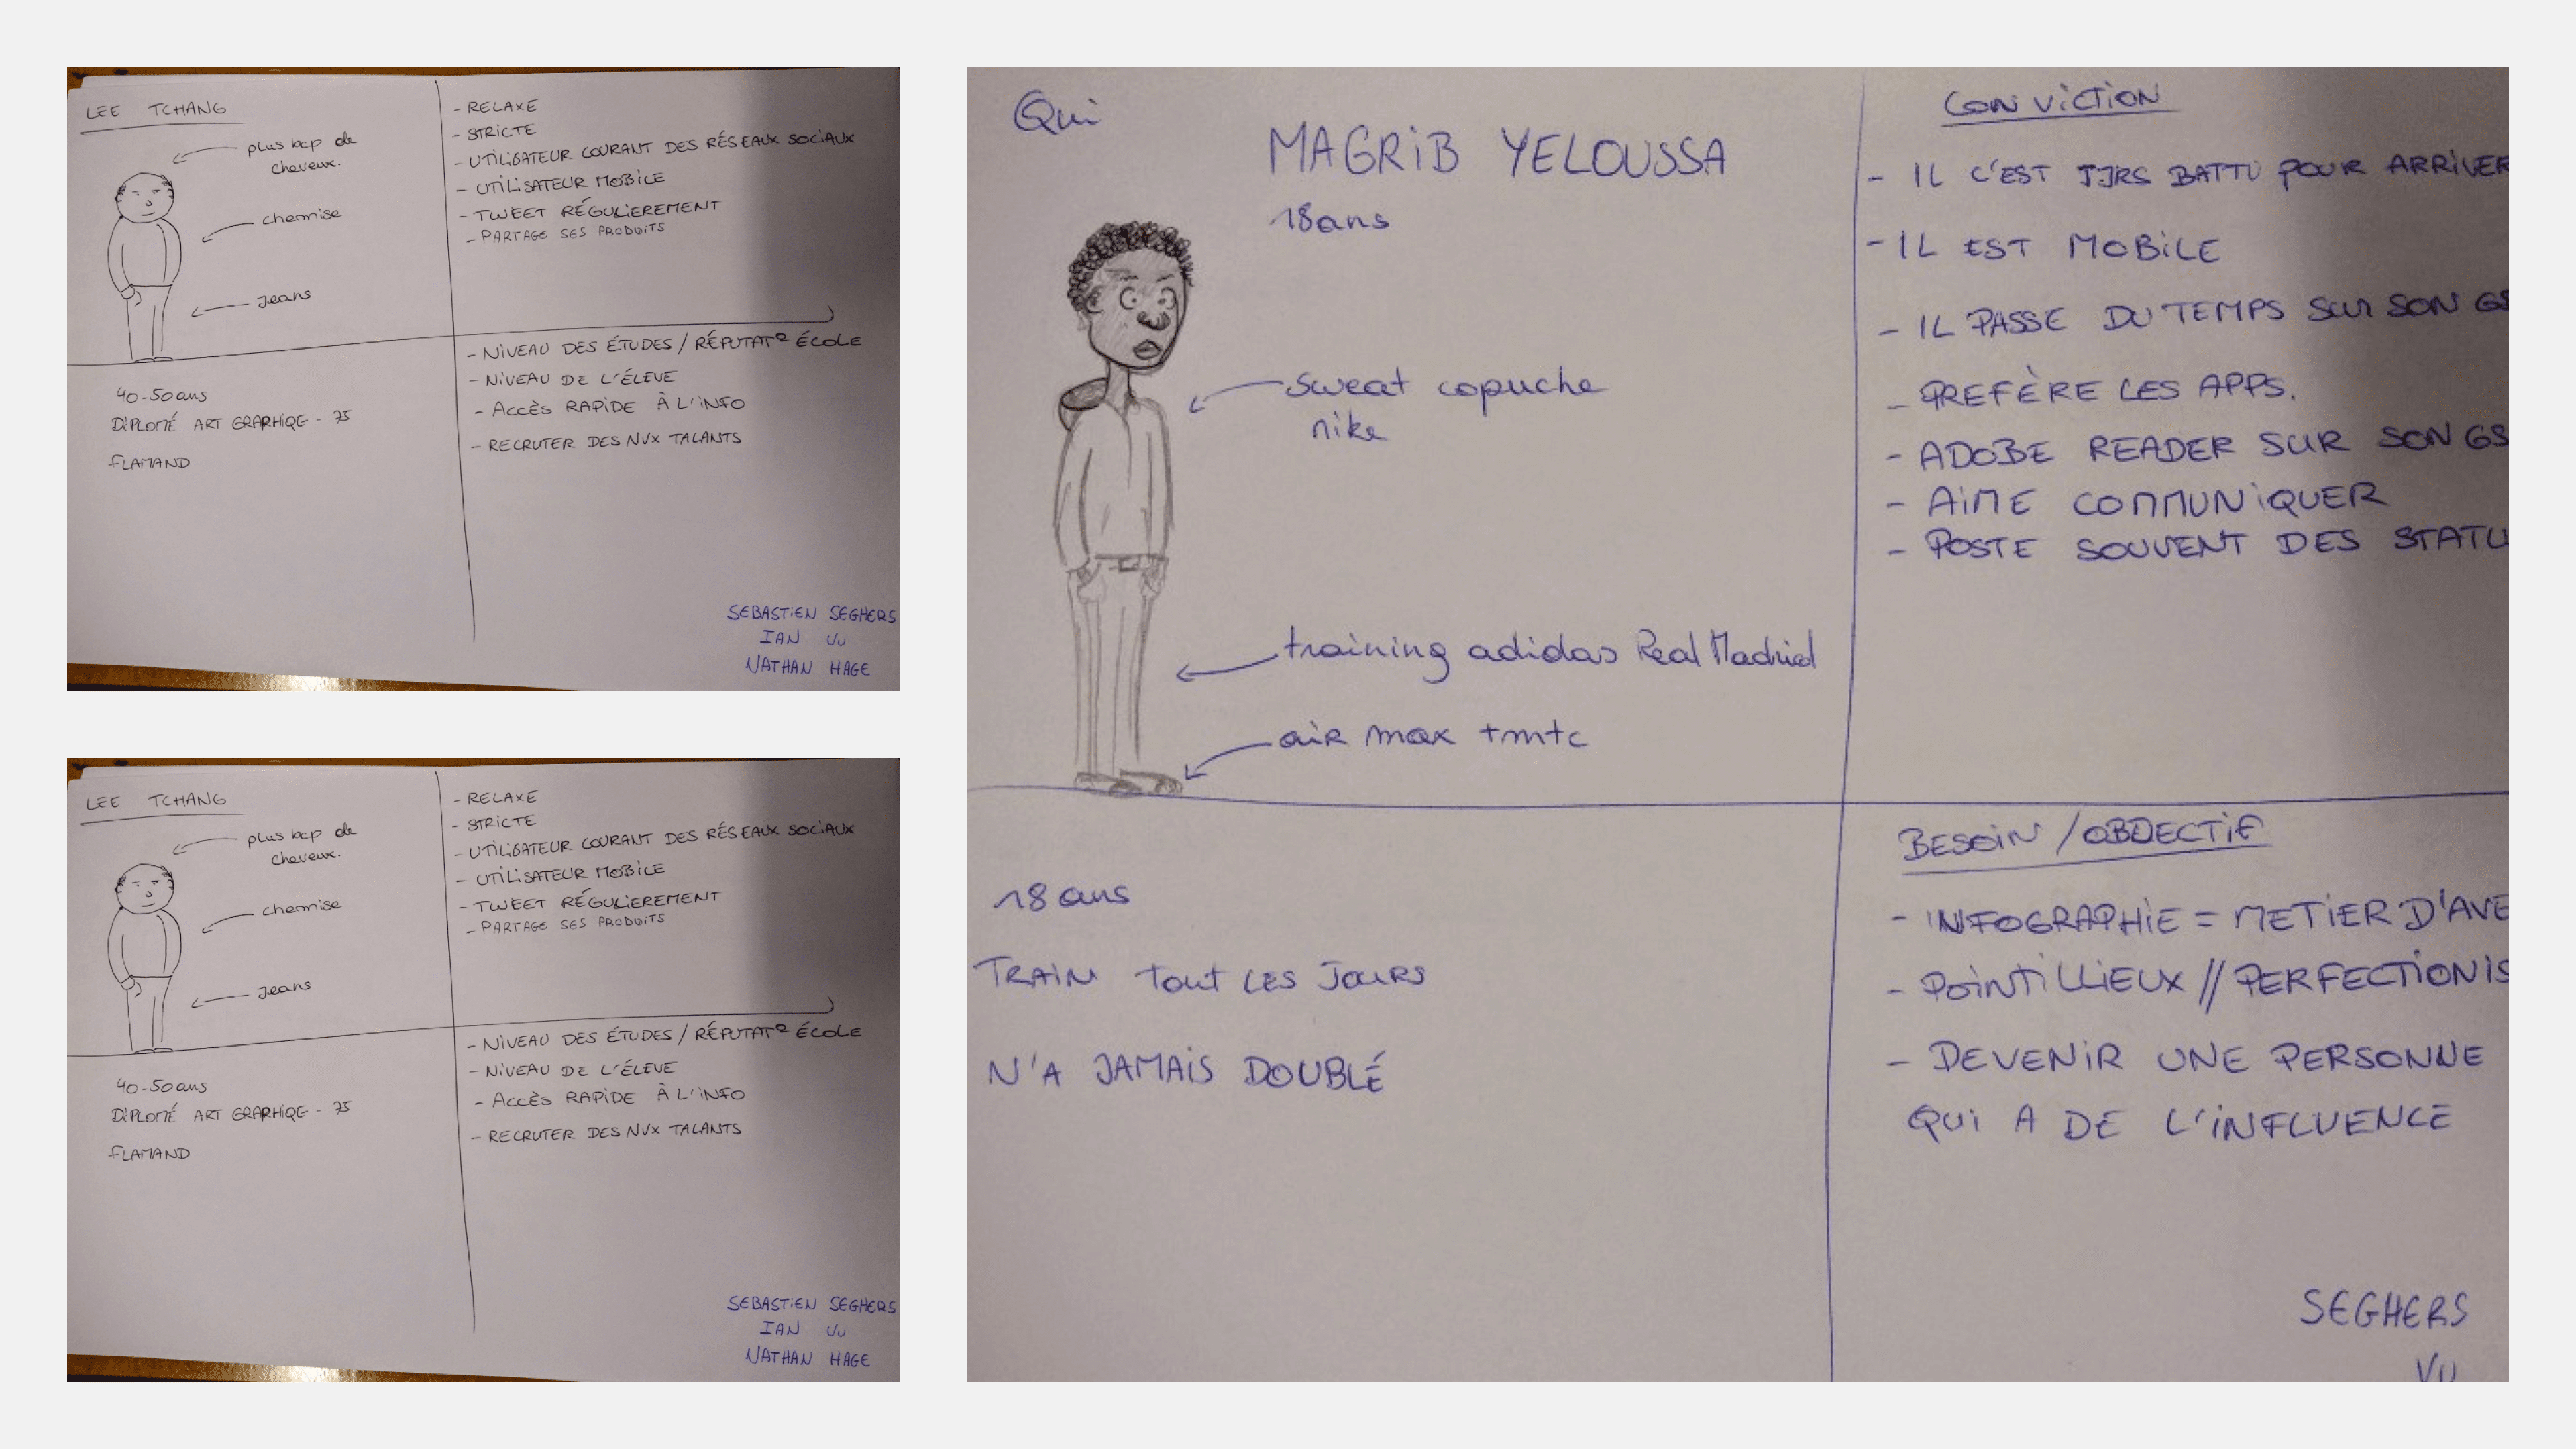 LEE TCHANG
plus bcp de
cheveux.
chemise
Jeans
- RELAXE
- STRICTE
- UTILISATEUR COURANT DES RÉSEAUX SOCIAUX
- UTILISATEUR MOBILE
- TWEET RÉGULIEREMENT
- PARTAGE SES PRODUITS
40-50 ans
DIPLOMÉ ART GRAPHIQE - 75
FLAMAND
- NIVEAU DES ÉTUDES / RÉPUTATº ÉCOLE
- NIVEAU DE L'ÉLEVE
- ACCÈS RAPIDE À L'INFO
- RECRUTER DES NVX TALANTS
SEBASTIEN SEGHERS
IAN VU
NATHAN HAGE
LEE TCHANG
plus bcp de
cheveux.
chemise
Jeans
- RELAXE
- STRICTE
- UTILISATEUR COURANT DES RÉSEAUX SOCIAUX
- UTILISATEUR MOBILE
- TWEET RÉGULIEREMENT
- PARTAGE SES PRODUITS
40-50 ans
DIPLOMÉ ART GRAPHIQE - 75
FLAMAND
- NIVEAU DES ÉTUDES / RÉPUTATº ÉCOLE
- NIVEAU DE L'ÉLEVE
- ACCÈS RAPIDE À L'INFO
- RECRUTER DES NVX TALANTS
SEBASTIEN SEGHERS
IAN VU
NATHAN HAGE
Qui
MAGRIB YELOUSSA
18 ans
sweat capuche
nike
training adidas Real Madrid
air max tmtc
CONVICTION
- IL C'EST TJRS BATTU POUR ARRIVER
- IL EST MOBILE
- IL PASSE DU TEMPS SUR SON GS
- PREFÈRE LES APPS.
- ADOBE READER SUR SON GS
- AIME COMMUNIQUER
- POSTE SOUVENT DES STATU
18 ans
TRAIN TOUT LES JOURS
N'A JAMAIS DOUBLÉ
BESOIN / OBJECTIF
- INFOGRAPHIE = METIER D'AVE
- POINTILLIEUX // PERFECTIONIS
- DEVENIR UNE PERSONNE
QUI A DE L'INFLUENCE
SEGHERS
VU